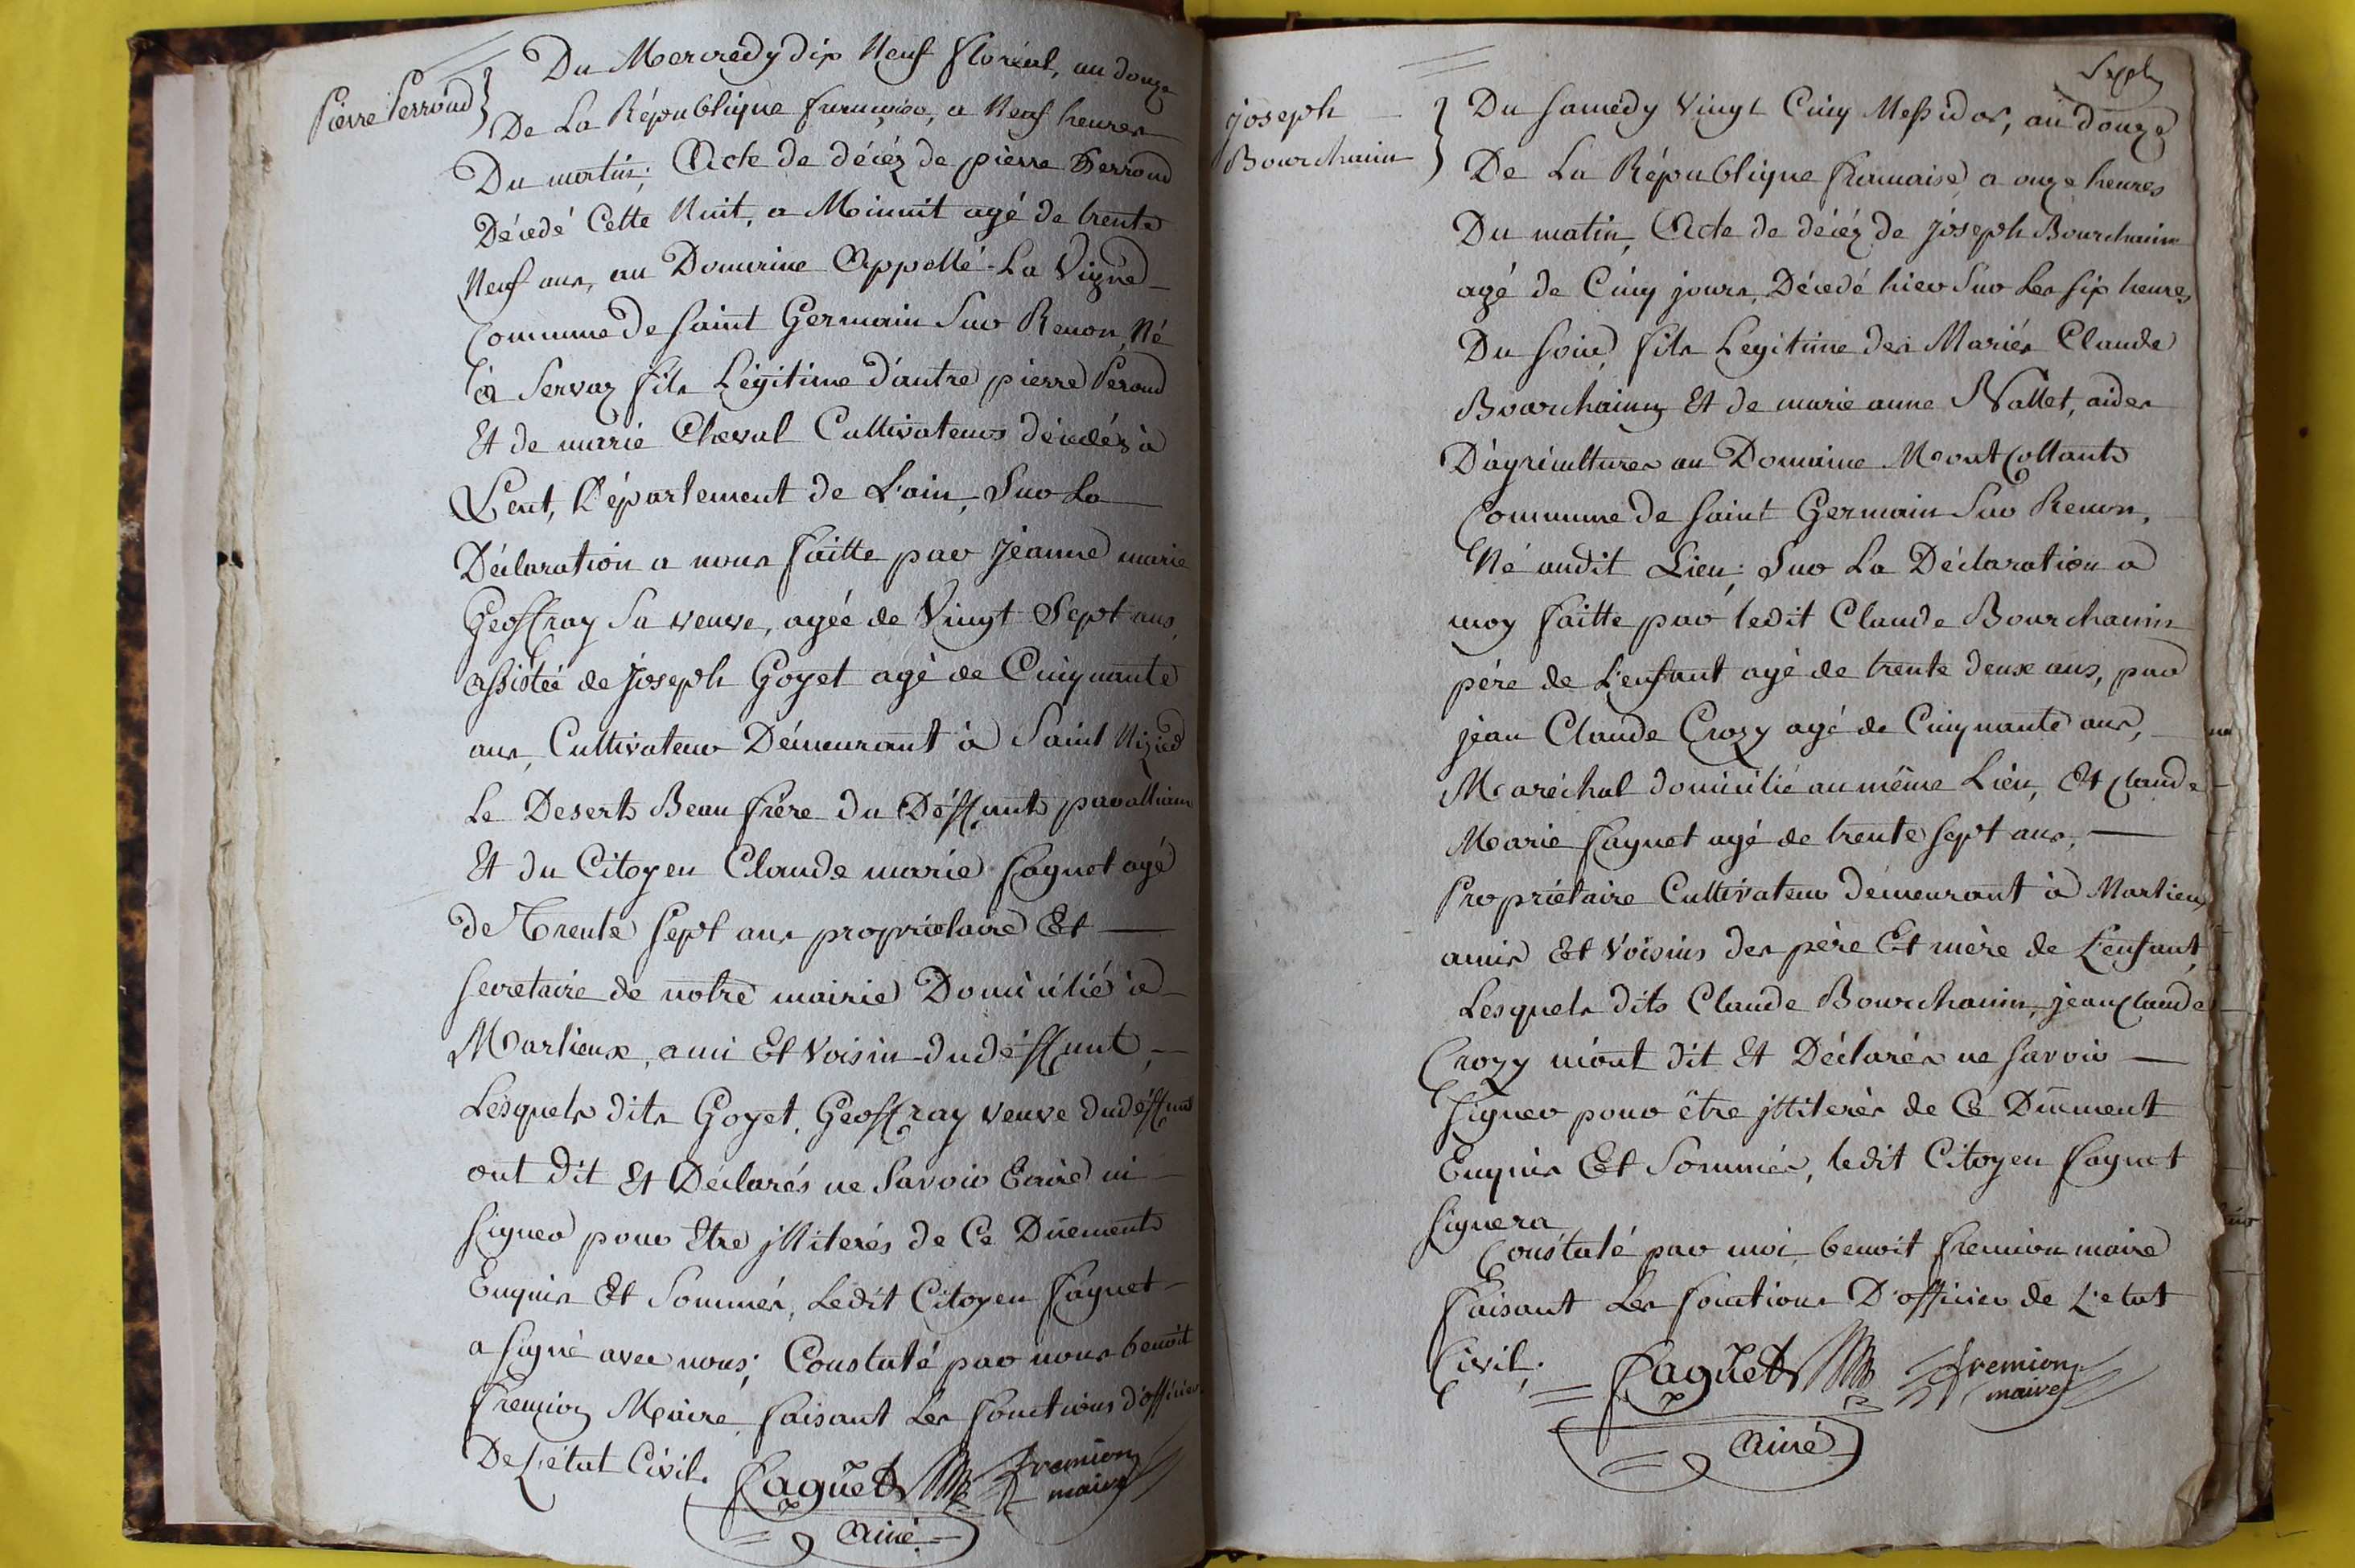 Pierre Perroud
Du Mercredy dix Neuf floréal, an douze
De La République francaise, a Neuf heures
Du matin; Acte de décéz de pierre Perroud
Décedé Cette Nuit, a Minuit agé de trente
Neuf ans, au Domaine Appellé La Vigne
Commune de Saint Germain Sur Renon, Né
à Servaz fils Légitime d'autre pierre Peroud
Et de marie Cheval Cultivateurs décedés à
Lent, Département de L'ain, Sur La
Déclaration a nous faitte par Jeanne marie
Geoffray Sa veuve, agée de Vingt Sept ans,
assistée de Joseph Goyet agé de Cinquante
ans, Cultivateur Demeurant à Saint Nizied
Le Desert Beau frère du Déffunt par alliance
Et du Citoyen Claude marie faguet agé
de Trente Sept ans propriétaire Et
Secretaire de notre mairie Domicilié à
Marlieux, ami Et Voisin du déffunt,
Lesquels dits Goyet, Geoffray veuve du déffunt
ont dit Et Déclarés ne Savoir Ecrire ni
signer pour Etre jlliterés de Ce Duement
Enquis Et Sommés, Ledit Citoyen faguet
a signé avec nous; Constaté par nous benoit
fremion Maire, faisant Les fonctions d'officier
De L'état Civil.
faguet fremion
maire
Ainé
Sept
joseph
Bourchanin
Du Samedy Vingt Cinq Messidor, an douze
De La République francaise a onze heures
Du matin, Acte de décéz de joseph Bourchanin
agé de Cinq jours, Décedé hier Sur Les six heures
Du Soir, fils Legitime des Mariés Claude
Bourchanin Et de marie anne Nallet, aides
D'agriculture au Domaine Montcollant
Commune de Saint Germain Sur Renon,
Né audit Lieu; Sur La Déclaration a
moy faitte par ledit Claude Bourchanin
pére de L'enfant agé de trente deux ans, par
jean Claude Crozy agé de Cinquante ans,
Maréchal domicilié au même Lieu, Et Claude
Marie faguet agé de trente sept ans,
Propriétaire Cultivateur demeurant à Marlieux
amis Et Voisins des père Et mère de L'enfant,
Lesquels dits Claude Bourchanin, jean Claude
Crozy m'ont dit Et Déclarés ne savoir
signer pour être jlliterés de Ce Duement
Enquis Et Sommés, ledit Citoyen faguet
signera
Constaté par moi benoit fremion maire
faisant Les fonctions D'officier de L'etat
Civil.
faguet fremion
maire
Ainé